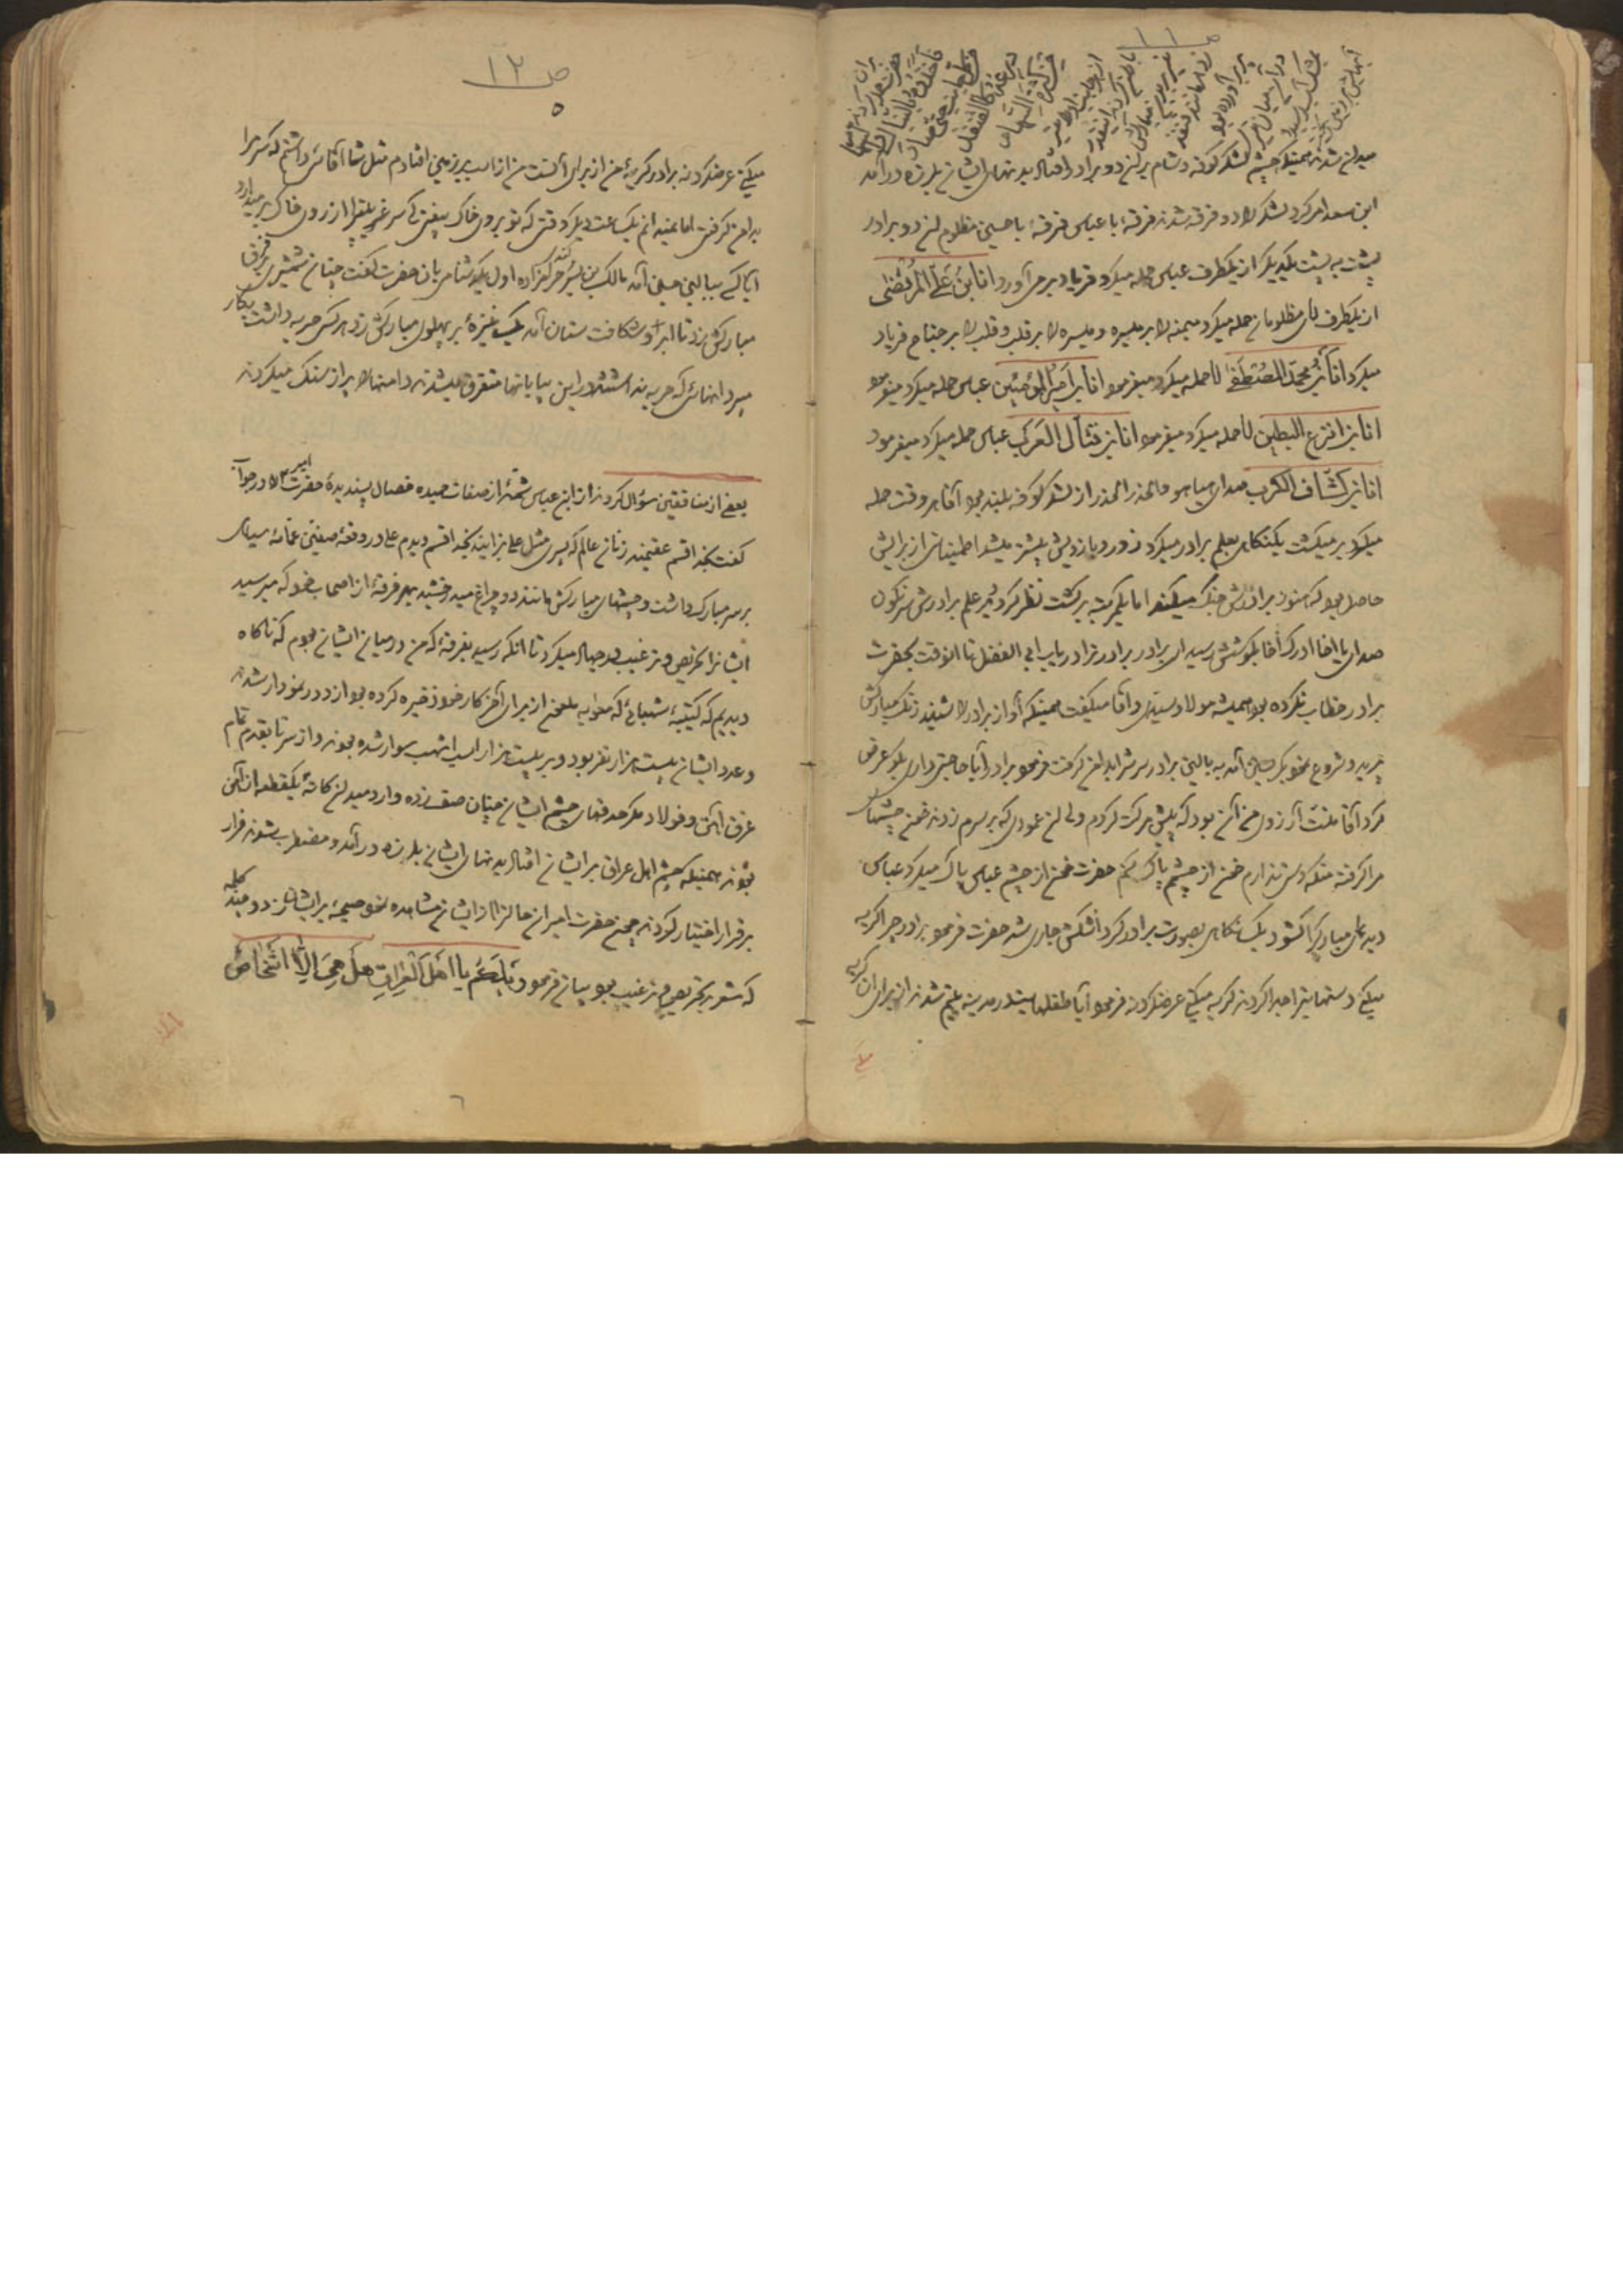 ص ۱۱
میدان شدند همینکه چشم لشکر کوفه و شام بر این دو برادر افتاد بدنهای ایشان بلرزه درآمد
ابن سعد امر کرد لشکر را دو فرقه شدند فرقهٔ با عباس فرقهٔ با حسین مظلوم این دو برادر
پشت به پشت یکدیگر از یکطرف عباس حمله میکرد فریاد برمی آورد انا ابن علی المرتضی
از یکطرف آقای مظلومان حمله میکرد میمنه را بر میسره و میسره را بر قلب و قلب را بر جناح فریاد
میکرد انا ابن محمد المصطفی آقا حمله میکرد میفرمود انا ابن امیر المؤمنین عباس حمله میکرد میفرمود
انا ابن انزع البطین آقا حمله میکرد میفرمود انا ابن قتال العرب عباس حمله میکرد میفرمود
انا ابن کشاف الکرب صدای هیاهو و الحذر الحذر از لشکر کوفه بلند بود آقا هر وقت حمله
میکرد بر میگشت یکنگاهی بعلم برادر میکرد زور و بازویش بیشتر میشد اطمینانی از برایش
حاصل بود که هنوز برادرش جنگ میکند اما یکمرتبه برگشت نظر کرد دید علم برادرش سرنگون
صدای یا اخا ادرک اخا بگوشش رسید ای برادر برادرترا دریاب ابی الفضل تا انوقت بحضرت
برادر خطاب نکرده بود همیشه مولا و سیدی و آقا میگفت همینکه آواز برادر را شنید رنگ مبارکش
پرید و شروع نمود بگریستن آمد به بالین برادر سرش را بدامن گرفت فرمود برادر آیا حاجتی داری بگو عرض
کرد آقا منت آرزوی من آن بود که پیش مرگت گردم ولی این عمودی که بر سرم زدند خون چشمهای
مرا گرفته منکه دستی ندارم خون از چشم پاک کنم حضرت خون از چشم عباس پاک میکرد عباس
دیدهای مبارک را گشود یک نگاهی بصورت برادر کرد اشکش جاری شد حضرت فرمود برادر چرا گریه
میکنی دستهایت را جدا کردند گریه میکنی عرضکرد نه فرمود آیا طفلهایت در مدینه یتیم شدند از برای آن گریه
ص ۱۲
۵
میکنی عرضکرد نه برادر گریهٔ من از برای آنست من از اسب بر زمین افتادم مثل شما آقائی داشتم که سر مرا
بدامن گرفتی اما نمیدانم یکساعت دیگر وقتی که تو بروی خاک بیفتی که سر غریبترا از روی خاک بر میدارد
آیا کی ببالین می آید مالک بن یسر کندی حرامزاده اول یکدشنامی بان حضرت گفت چنان شمشیری بفرق
مبارکش زد تا ابرو شکافت سنان آمد یک نیزهٔ بر پهلوی مبارکش زد هر کس حربه داشت بکار
میبرد انهائی که حربه نداشتند در این بیابانها متفرق میشدند دامنها را پر از سنگ میکردند
بعضی از منافقین سؤال کردند از ابن عباس شمهٔ از صفات حمیده خصال پسندیدهٔ حضرت امیر در جواب
گفت بخدا قسم عقیمند زنان عالم که پسری مثل علی بزایند بخدا قسم دیدم علی در وقعهٔ صفین عمامهٔ سیاهی
بر سر مبارک داشت و چشمهای مبارکش مانند دو چراغ میدرخشید بهر فرقهٔ از اصحاب خود که میرسید
ایشانرا تحریص و ترغیب بجهاد میکرد تا انکه رسید بفرقهٔ که من در میان ایشان بودم که ناگاه
دیدیم که کتیبهٔ شهبائی که معویه ملعون از برای آخر کار خود ذخیره کرده بود از دور نمودار شدند
و عدد ایشان بیست هزار نفر بود و بر بیست هزار اسب اشهب سوار شده بودند و از سر تا بقدم تمام
غرق آهن و فولاد مگر حدقهای چشم ایشان چنان صف زده وارد میدان کانه یکقطعه از آهن
بودند همینکه چشم اهل عراق بر ایشان افتاد بدنهای ایشان بلرزه درآمد و مضطرب شوند فرار
بر قرار اختیار کردند چون حضرت امیر ان حالترا از ایشان مشاهده نمود صیحهٔ بر ایشان زد و چند کلمه
که مشعر بتحریص و ترغیب بود بیان فرمود ویلکم یا اهل العراق هل هی الا اشخاص